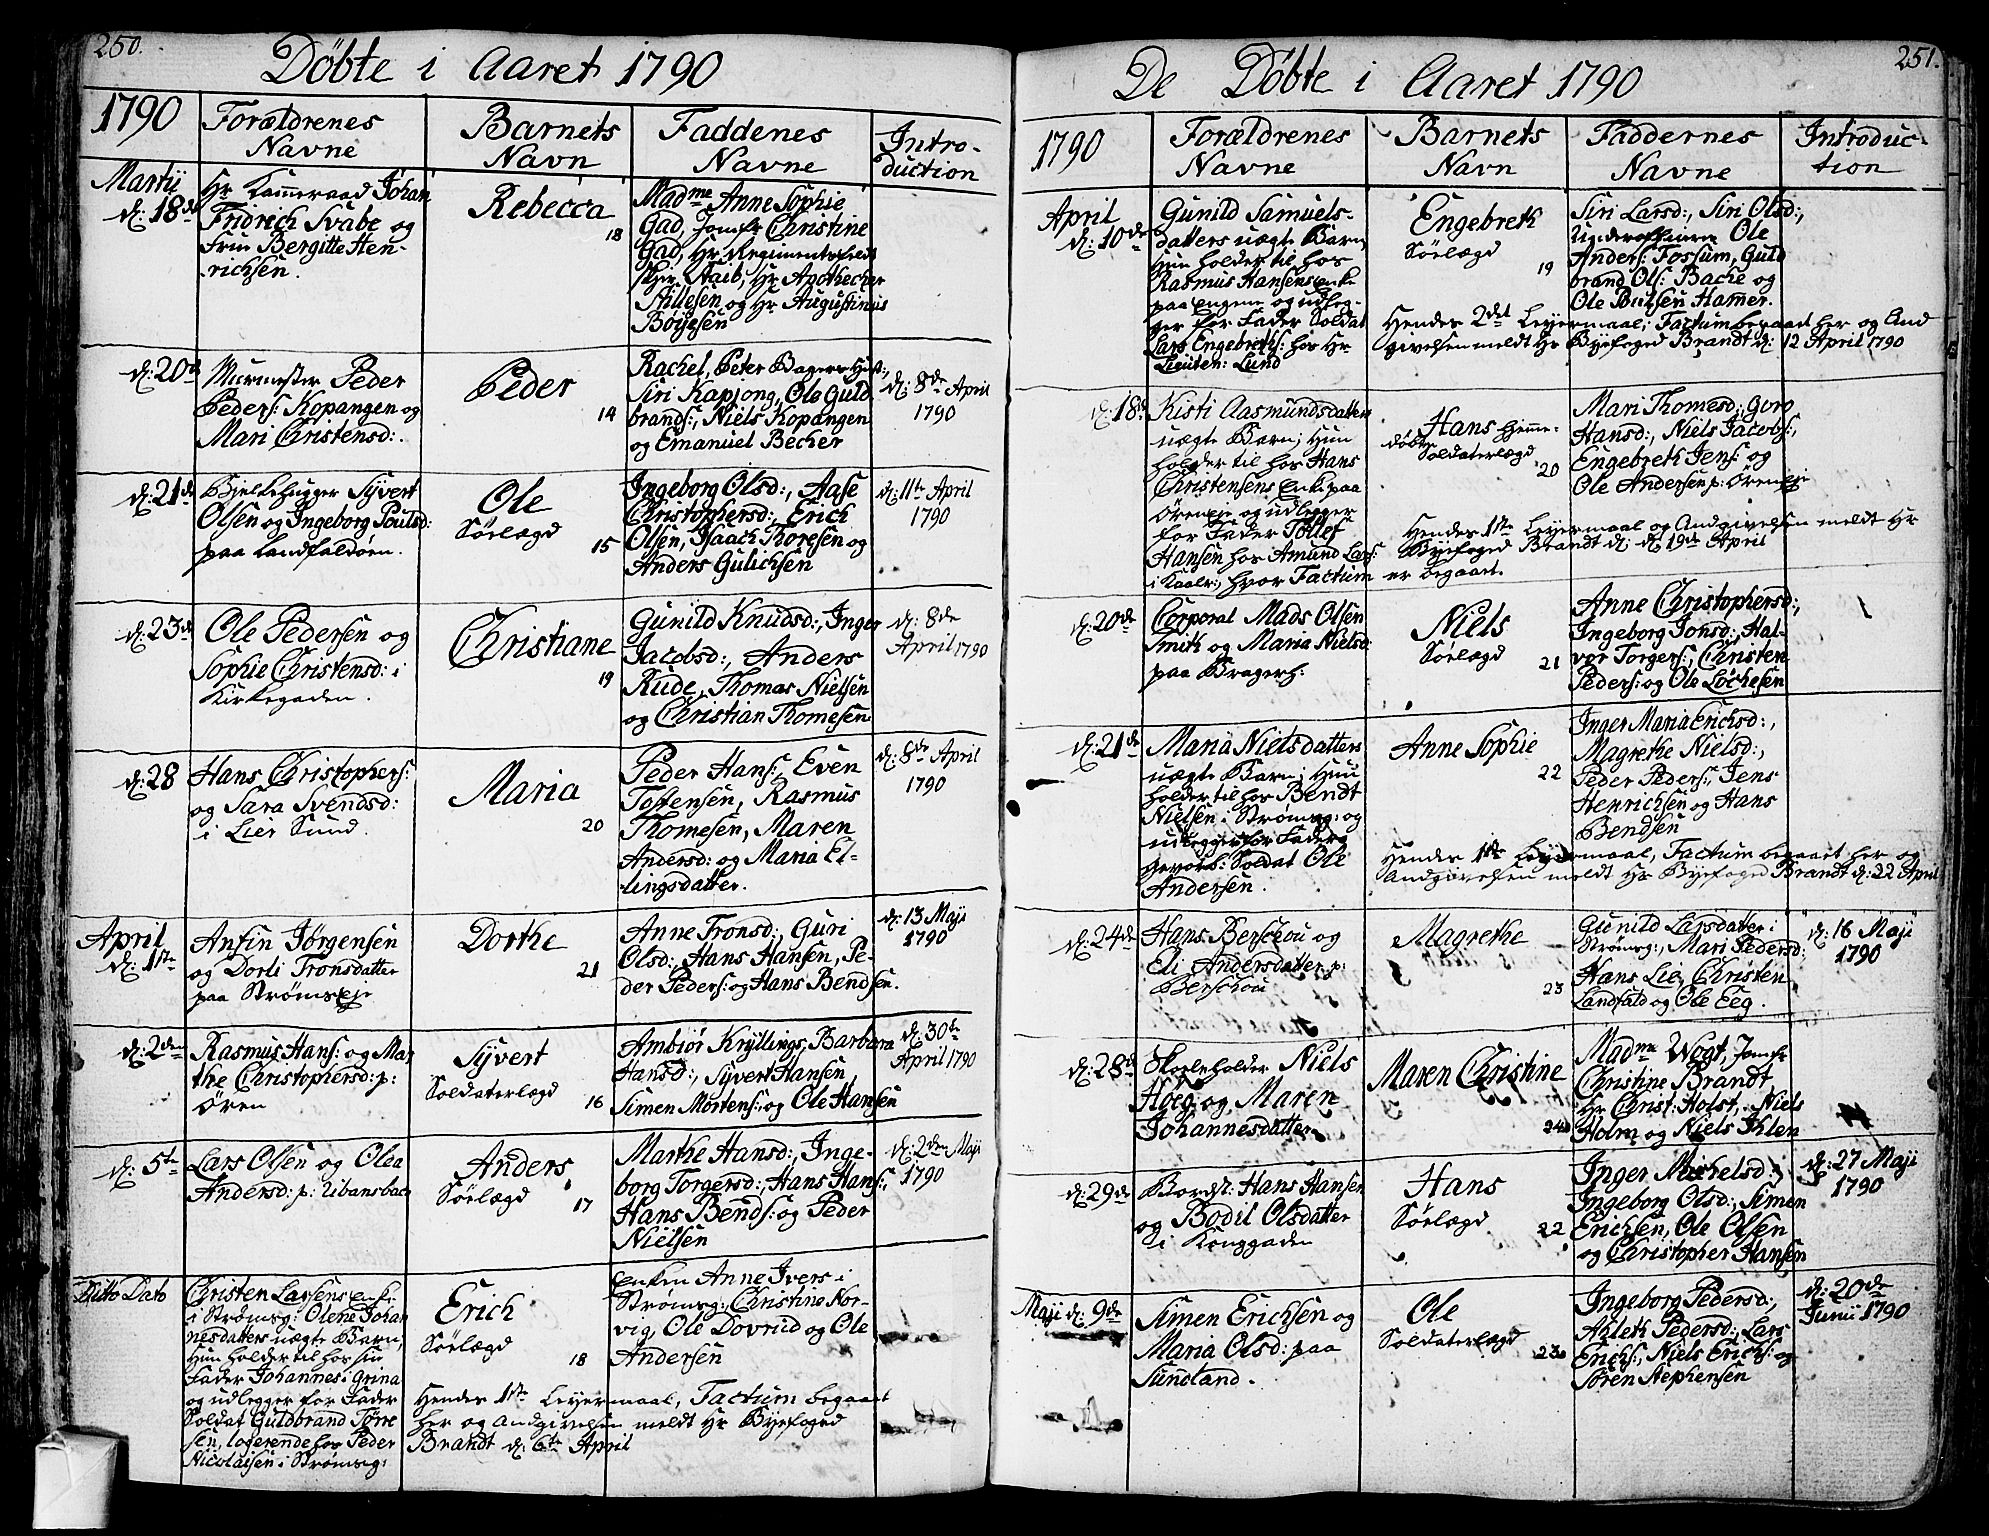 250.
Döbte i Aaret 1790
1790
Forældrenes
Navne
Barnets
Navn
Faddenes
Navne
Intro-
duction
Martij
d: 18de
Hr Kammeraad Johan
Fridrech Svabe og
Frue Bergitte Hen-
richsen.
Rebecca
13
Madme Anne Sophie
Gad, Jomfr Christine
Gad, Hr Regimentsfeldt
skjer Staib, Hr Apothecher
Stillesen og Hr Augustinus
Böijesen
d: 20de
Murmester Peder
Peders: Kopangen og
Mari Christensd:.
Peder
14
Rachel, Peter Bagers Hust:,
Siri Kapjong, Ole Guld
brands:, Niels Kopangen
og Emanuel Becher
d: 8de April
1790
d: 21de
Bjelkehugger Syvert
Olsen og Ingeborg Poulsd:
paa Landfaldöen.
Ole
Sölægd
15
Ingeborg Olsd:, Aase
Christophersd:, Erich
Olsen, Isaach Thoresen og
Anders Gulichsen
d: 11te April
1790
d: 23de
Ole Pedersen og
Sophie Christensd: i
Kirkegaden.
Christiane
19
Gunild Knudsd:, Inger
Jacobsd:, Anders
Rude, Thomas Nielsen
og Christian Thomesen
d: 8de
April 1790
d: 28
Hans Christophers:
og Sara Svendsd:
i Lier Sund.
Maria
20
Peder Hans:, Even
Tostensen, Rasmus
Thomesen, Maren
Andersd: og Maria El-
lingsdatter.
d: 8de April
1790
April
d: 1ste
Anfin Jörgensen
og Dorli Tronsdatter
paa Strömseje
Dorthe
21
Anne Tronsd:, Guri
Olsd:, Hans Hansen, Pe-
der Peders: og Hans Bendsen.
d: 13 Maji
1790
d: 2den
Rasmus Hans: og Mar
the Christophersd: p:
Ören
Syvert
Soldaterlægd
16
Ambiör Kryllings, Barbara
Hansd:, Syvert Hansen,
Simen Mortens: og Ole Hansen
d: 30te
April 1790
d: 5te
Lars Olsen og Olea
Andersd: p: Ubansbach
Anders
Sölægd
17
Marthe Hansd:, Inge-
borg Torgersd:, Hans Hans:,
Hans Bends: og Peder
Nielsen
d: 2den Maji
1790
Ditto Dato
Christen Larsens enke
i Strömsg: Olene Johan
nesdatters uægte Barn,
Hun holder til hos sin
Fader Johannes i Grina
og udlegger for Fader
Soldat Guldbrand Törre
sen, logerende hos Peder
Nicolaisen i Strömsg:
Erich
Sölægd
18
enken Anne Ivers i
Strömsg:, Christine Nor-
vig, Ole Dovrud og Ole
Andersen
Hendes 1ste Leyermaal, Factum begaaet
her og Andgivelsen meldt Hr Byefoged
Brandt d: 6te April
251.
De Döbte i Aaret 1790
1790
Forældrenes
Navne
Barnets
Navn
Faddernes
Navne
Introduc-
tion
April
d: 10de
Gunild Samuels-
datters uægte Barn
Hun holder til hos
Rasmus Hansens enke
paa Engene og udleg-
ger for Fader Soldat
Lars Engebreths: hos Hr
Lieuten: Lund
Engebreth
Sölægd
19
Siri Larsd:, Siri Olsd:,
Underofficeren Ole
Anders: Fossum, Guld
brand Ols: Bache og
Ole Paulsen Hamer.
Hendes 2det Leyermaal, Factum begaaet her og And
givelsen meldt Hr Byefoged Brandt d: 12 April 1790
d: 18de
Kisti Aasmundsdatters
uægte Barn; Hun
holder til hos Hans
Christensens enke paa
Öreneje og udlegger
for Fader Tollef
Hansen hos Amund Lars:
i Kaalr:, hvor Factum
Hans hjemme-
döbt
Soldaterlægd
20
Mari Thomesd:, Goro
Hansd:, Niels Jacobs:,
Engebreth Jens: og
Ole Andersen p: Öreneje
Hendes 1ste Leyermaal og Andgivelsen meldt Hr
Byefoged Brandt d: d: 19de April
er begaaet.
d: 20de
Corporal Mads Olsen
Smith og Maria Nielsd:
paa Bragerh:
Niels
Sölægd
21
Anne Christophersd:,
Ingeborg Jonsd:, Hal-
vor Torgers:, Christen
Peders: og Ole Lochesen
d: 21de
Maria Nielsdatters
uægte Barn; Hun
holder til hos Bendt
Nielsen i Strömsg: og
udlegger for Fader
gevorb: Soldat Ole
Andersen.
Anne Sophie
22
Inger Maria Erichsd:,
Magrethe Nielsd:,
Peder Peders:, Jens
Henrichsen og Hans
Bendsen
Hendes 1ste Leyermaal, Factum begaaet her og
Andgivelsen meldt Hr Byefoged Brandt d: 22 April
d: 24de
Hans Berschou og
Eli Andersdatter p:
Berschou
Magrethe
23
Gunild Larsdatter i
Strömsg:, Mari Pedersd:,
Hans Lie, Christen
Landfald og Ole Eeg.
d: 16 Maji
1790
d: 28de
Skoleholder Niels
Höeg og Maren
Johannesdatter
Maren Christine
24
Madme Wogt, Jomfr
Christine Brandt,
Hr Christ: Holst, Niels
Holm og Niels Ihlen
d: 29de
Bordst: Hans Hansen
og Bodil Olsdatter
i Konggaden
Hans
Sölægd
22
Inger Michelsd:,
Ingeborg Olsd:, Simen
Erichsen, Ole Olsen
og Christopher Hansen
d: 27 Maji
1790
Maji d: 9de
Simen Erichsen og
Maria Olsd: paa
Sundland.
Ole
Soldaterlægd
23
Ingeborg Pedersd:,
Ahleth Pedersd:, Lars
Erichs:, Niels Erichs: og
Sören Stephensen
d: 20de
Junii 1790